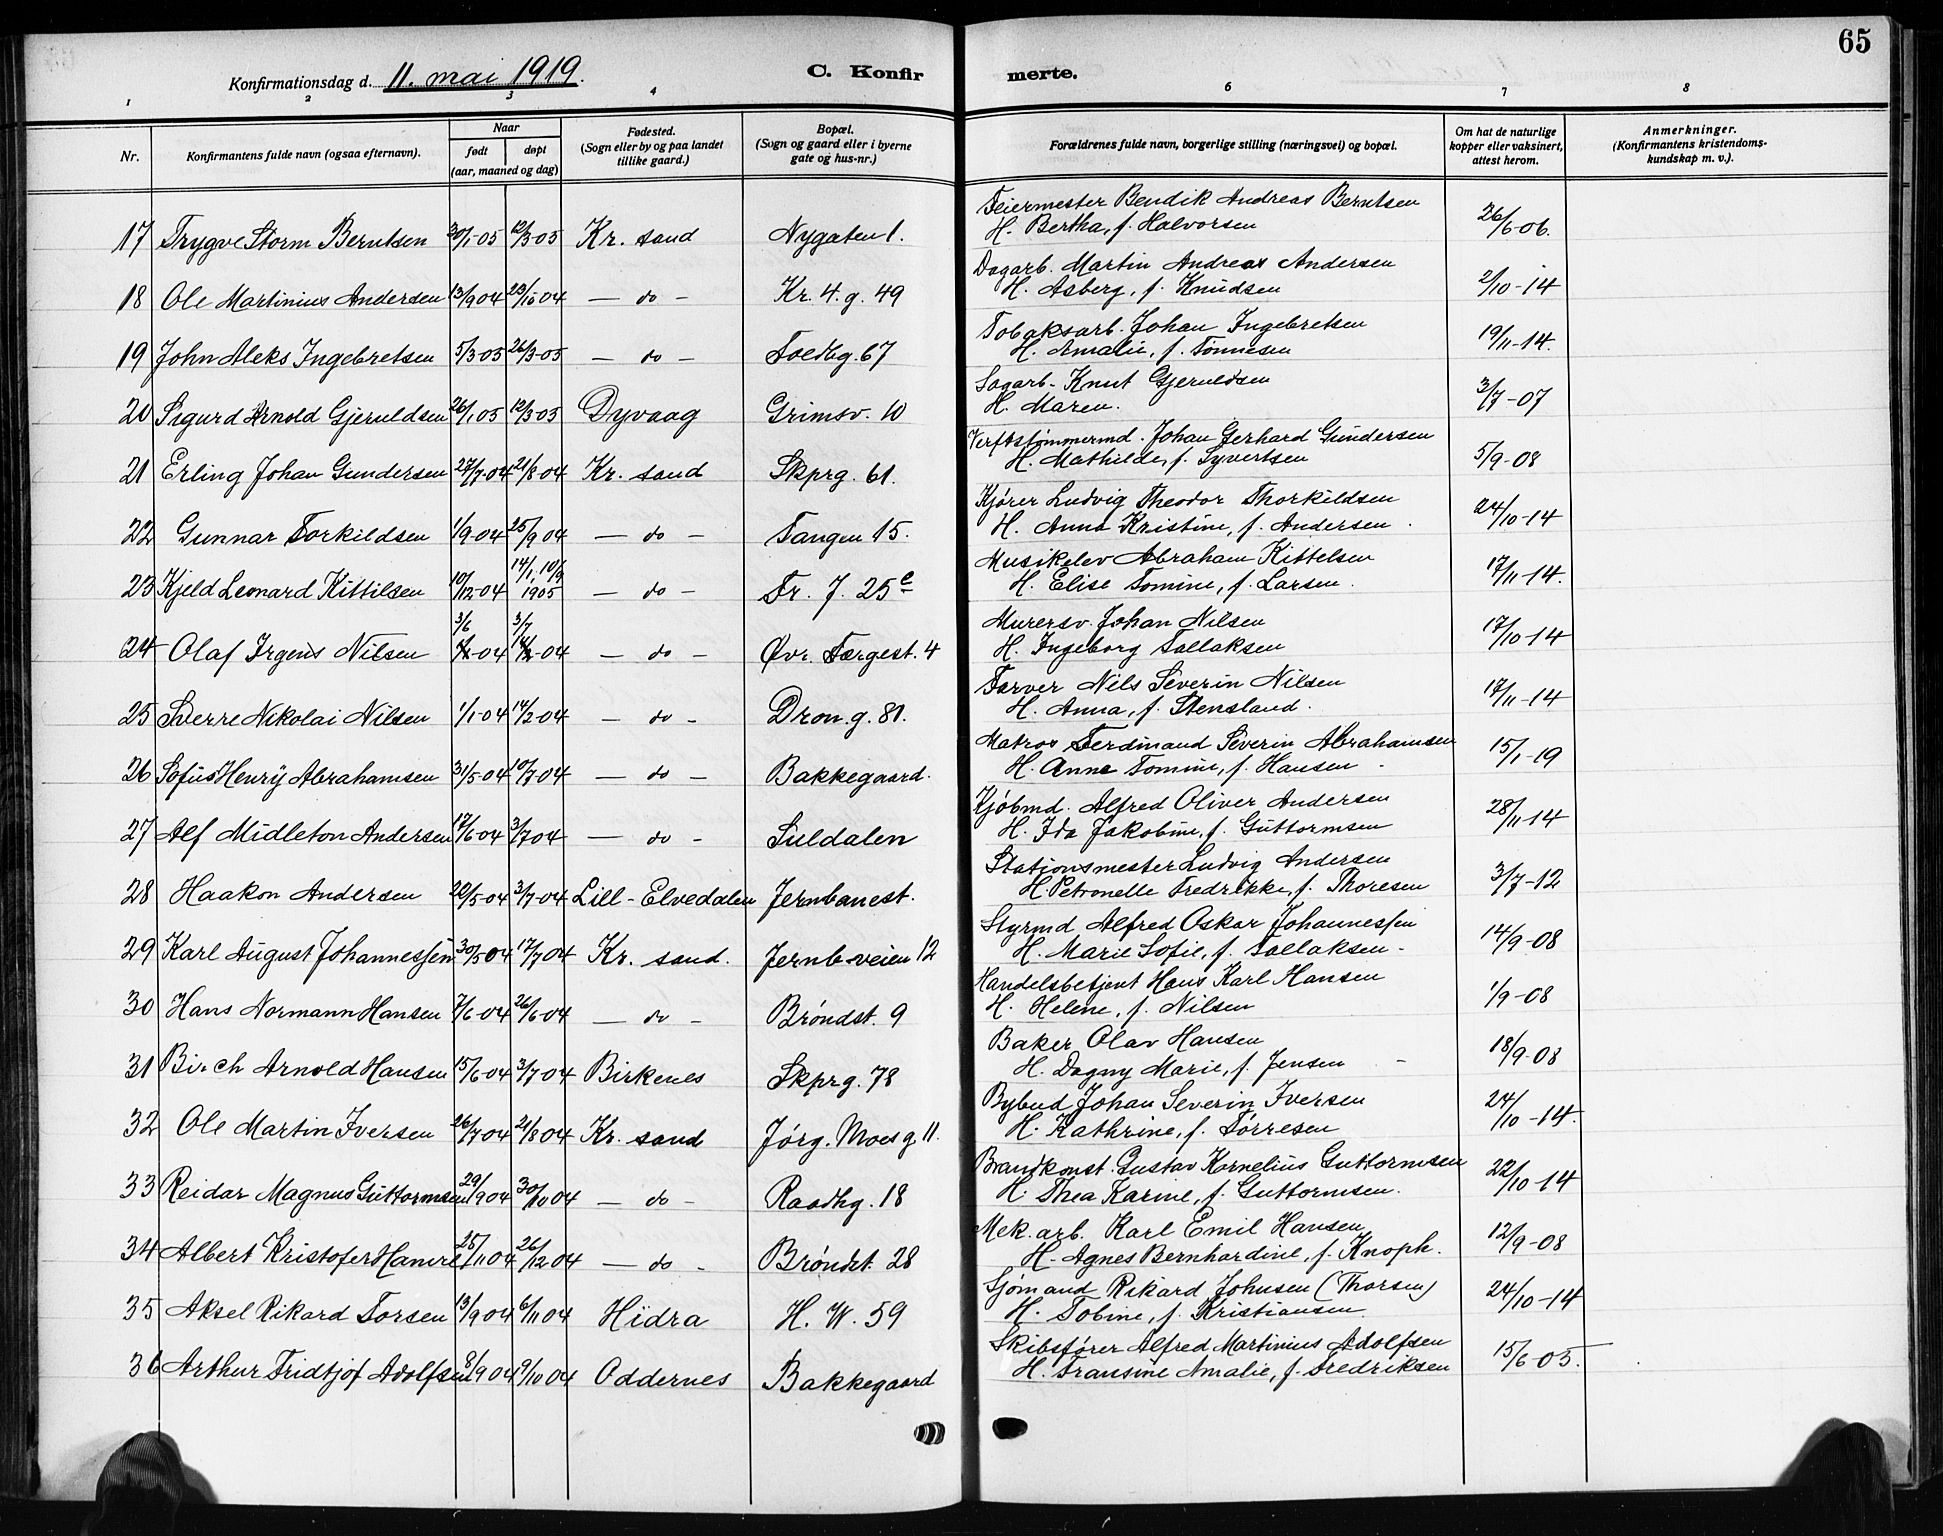 65
Konfirmationsdag d. 11. mai 1919.
C. Konfirmerte.
1 2 3 4 6 7 8
Nr. Konfirmantens fulde navn (ogsaa efternavn). Naar født døpt (aar, maaned og dag) Fødested. (Sogn eller by og paa landet tillike gaard.) Bopæl. (Sogn og gaard eller i byerne gate og hus-nr.) Forældrenes fulde navn, borgerlige stilling (næringsvei) og bopæl. Om hat de naturlige kopper eller vaksinert, attest herom. Anmerkninger. (Konfirmantens kristendomskundskap m. v.).
17 Trygve Storm Berntsen 30/1-05 12/3-05 Kr. sand Nygaten 1. Feiermester Bendik Andreas Berntsen 26/6-06.
H. Bertha, f. Halvorsen
18 Ole Martinius Andersen 13/9 04 23/10 04 — do — Kr. 4. g. 49 Dagarb. Martin Andreas Andersen 2/10-14
H. Asberg, f. Knudsen
19 John Aleks Ingebretsen 5/3-05 26/3-05 — do — Toldbg. 67 Tobaksarb. Johan Ingebretsen 19/11-14.
H. Amalie, f. Tønnesen
20 Sigurd Arnold Gjeruldsen 26/1 05 12/3-05 Dyvaag Grimsv. 10 Sagarb. Knut Gjeruldsen 3/7-07
H. Maren.
21 Erling Johan Gundersen 27/7-04 21/8-04 Kr. sand Skprg. 61. Verftstømmermd. Johan Gerhard Gundersen 5/9-08
H. Mathilde, f. Syvertsen
22 Gunnar Torkildsen 1/9-04 25/9 04 — do — Tangen 15. Kjører Ludvig Theodor Thorkildsen 24/10-14
H. Anna Kristine, f. Andersen
23 Kjeld Leonard Kittilsen 10/12-04 14/1, 10/9 1905 — do — Fr. J. 25 c Musikelev Abraham Kittelsen 17/11-14.
H. Elise Tomine, f. Larsen.
24 Olaf Irgens Nilsen 3/6 -04 3/7 -04 — do — Øvr. Færgest. 4 Murersv. Johan Nilsen 17/10-14
H. Ingeborg Tallaksen
25 Sverre Nikolai Nilsen 1/1-04 14/2-04 — do — Dron. g. 81. Farver Nils Severin Nilsen 17/11-14
H. Anna, f. Stensland.
26 Sofus Henry Abrahamsen 31/5-04 10/7-04 — do — Bakkegaard. Matros Ferdinand Severin Abrahamsen 15/1-19
H. Anne Tomine, f. Hansen
27 Alf Midleton Andersen 17/6-04 3/7 04 — do — Suldalen Kjøbmd. Alfred Oliver Andersen 28/11-14
H. Ida Jakobine, f. Guttormsen
28 Haakon Andersen 22/5-04 3/7-04 Lill-Elvedalen Jernbanest. Stationsmester Ludvig Andersen 3/7-12
H. Petronelle Fredrikke, f. Thoresen
29 Karl August Johannessen 30/5 04 17/7 04 Kr. sand. Jernb-veien 12 Styrmd Alfred Oskar Johannessen 14/9-08
H. Marie Sofie, f. Tallaksen-
30 Hans Normann Hansen 7/6-04 26/6-04 — do — Brøndst. 9 Handelsbetjent Hans Karl Hansen 1/9-08
H. Helene, f. Nilsen
31 Birch Arnold Hansen 15/6-04 3/7-04 Birkenes Skprg. 78 Baker Olav Hansen 18/9-08
H. Dagny Marie, f. Jensen
32 Ole Martin Iversen 26/7 04 21/8 04 Kr. sand Jørg. Moes g. 11. Bybud Johan Severin Iversen 24/10-14.
H. Kathrine, f. Tørresen
33 Reidar Magnus Guttormsen 29/9 04 30/10 04 — do — Raadhg. 18 Brandkonst. Gustav Kornelius Guttormsen 22/10-14
H. Thea Karine, f. Guttormsen.
34 Albert Kristofer Hamre 25/11 04 26/12 04 — do — Brøndst. 28 Mek. arb. Karl Emil Hansen 12/9-08
H. Agnes Bernhardine, f. Knoph.
35 Aksel Rikard Torsen 13/9 04 6/11 04 Hidra H. W. 59 Sjømand Rikard Johnsen (Thorsen) 24/10-14
H. Tobine, f. Kristiansen
36 Arthur Fridtjof Adolfsen 8/9 04 9/10 04 Oddernes Bakkegaard Skibsfører Alfred Martinius Adolfsen 15/6-05.
H. Fransine Amalie, f. Fredriksen